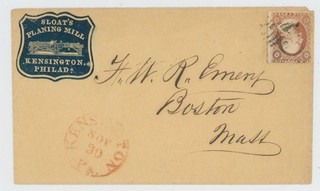 SLOAT'S
PLANING MILL
KENSINGTON,
PHILAD.
F. W. R. Emery
Boston
Mass
NOV
30